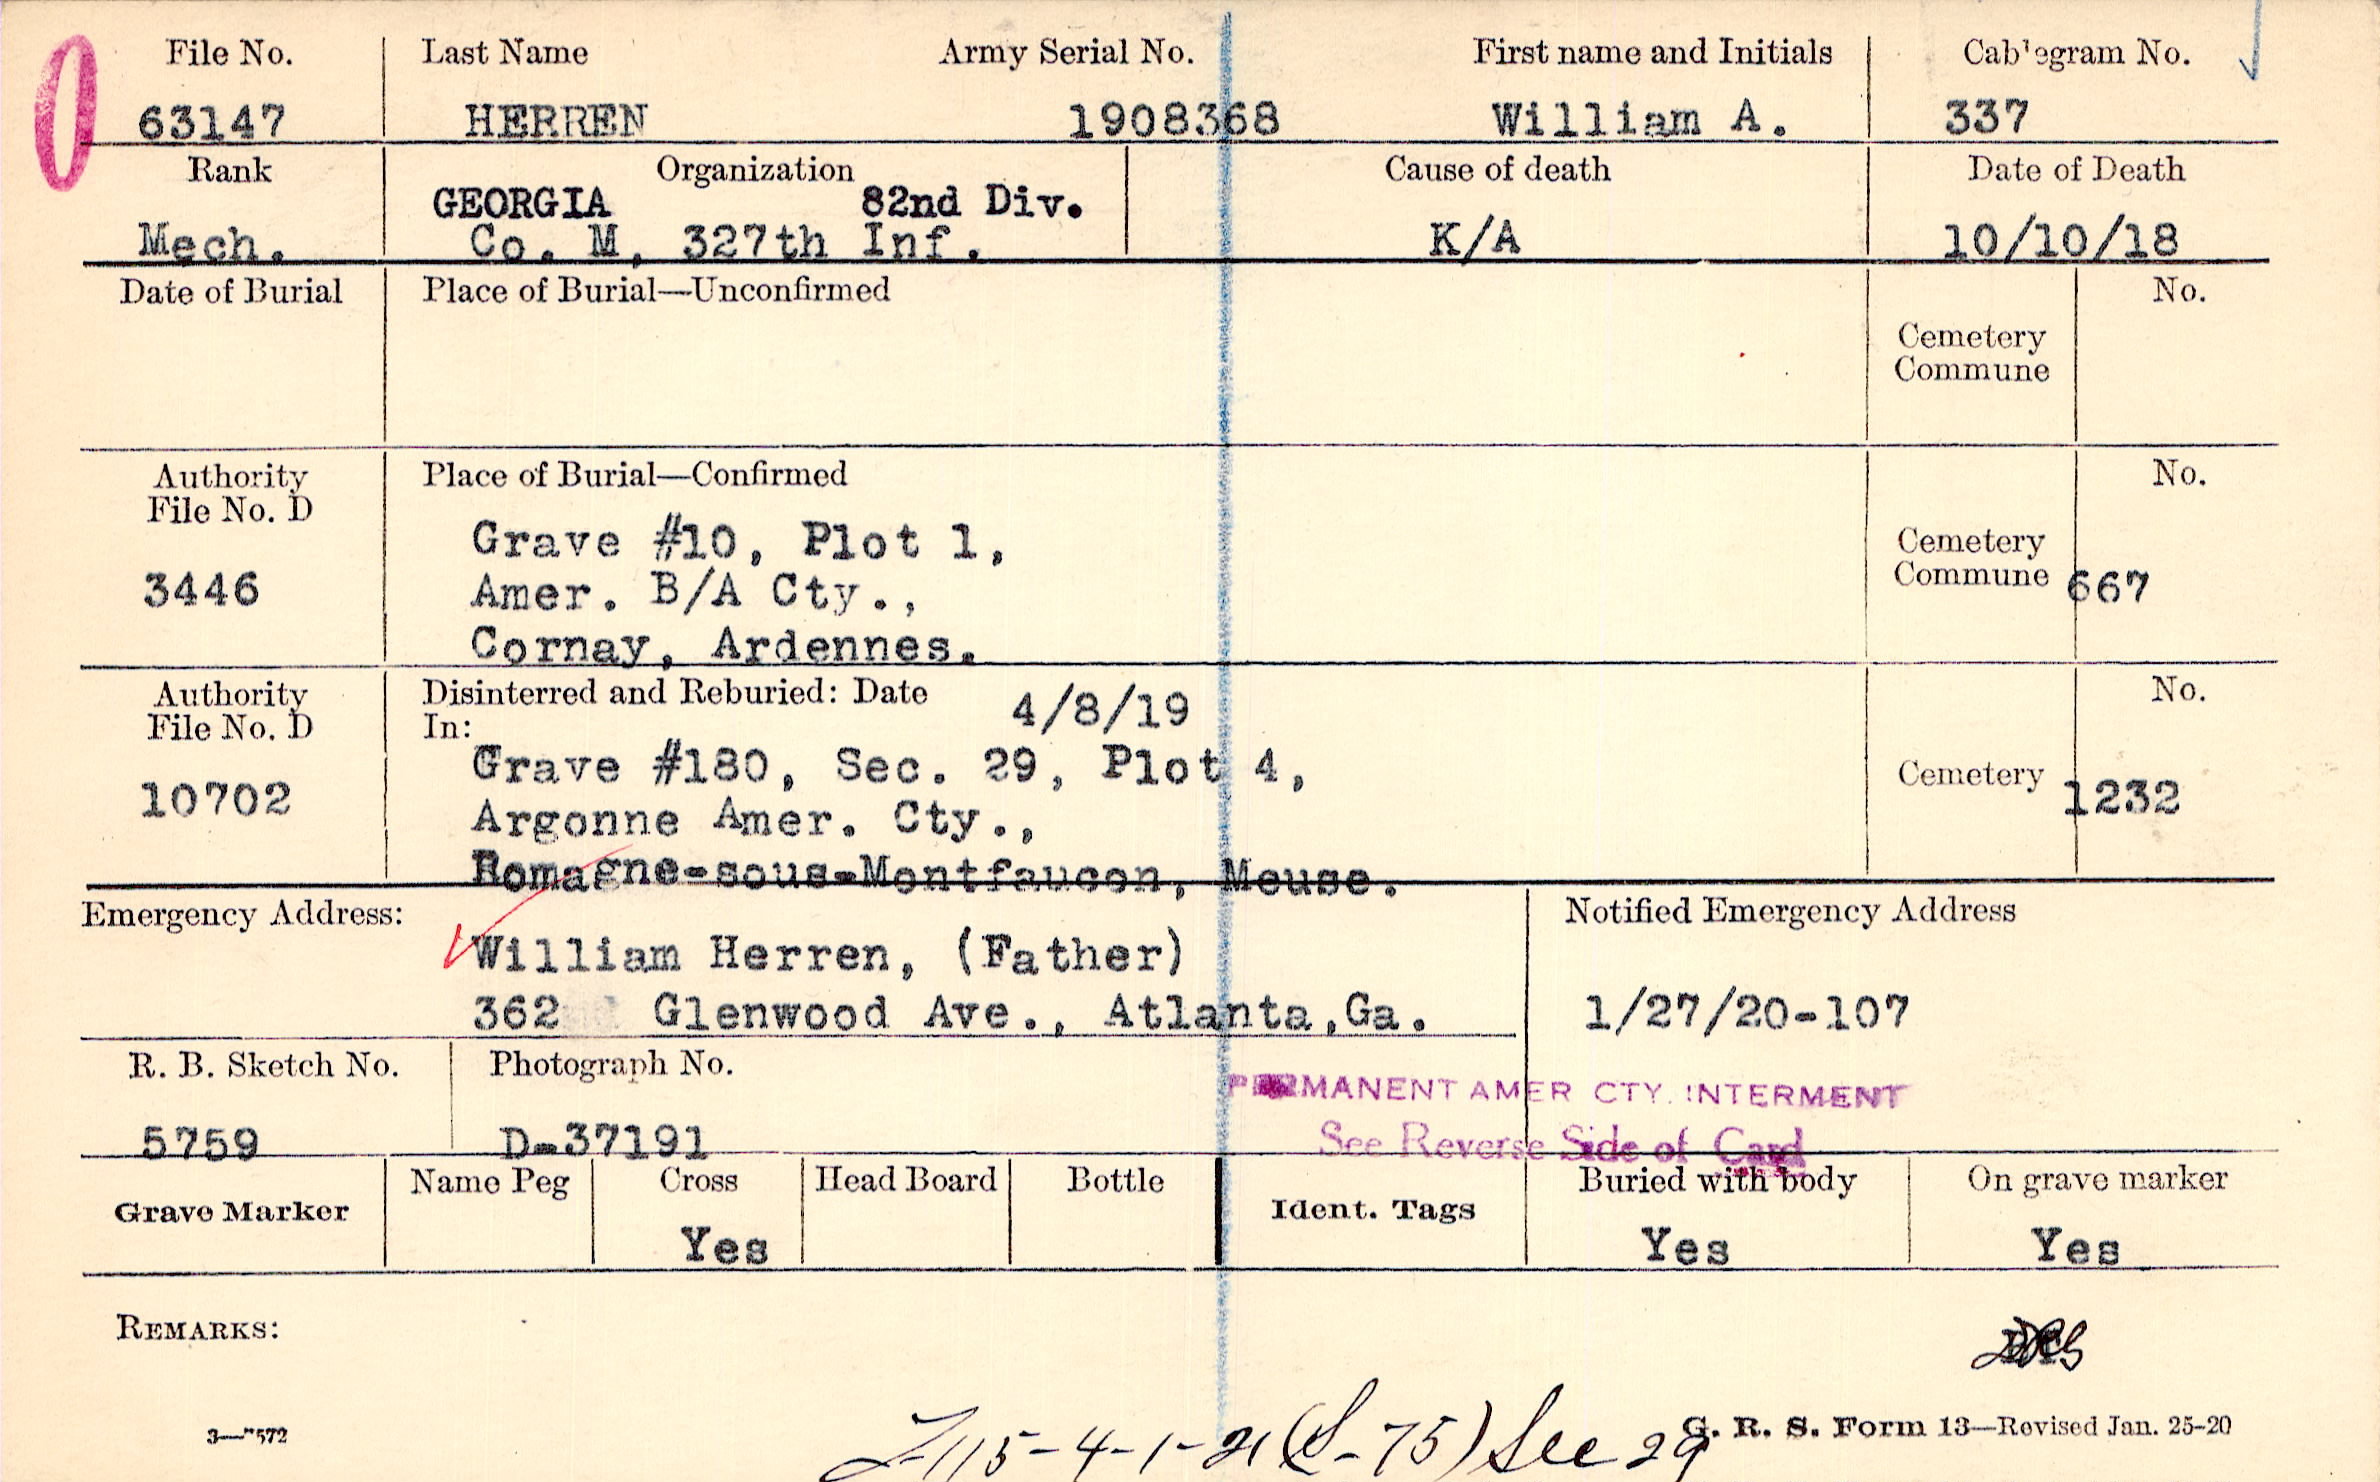 File No. Last Name Army Serial No. First name and Initials Cablegram No.
63147 HERREN 1908368 William A. 337
Rank Organization Cause of death Date of Death
GEORGIA 82nd Div.
Mech. Co. M, 327th Inf. K/A 10/10/18
Date of Burial Place of Burial—Unconfirmed No.
Cemetery
Commune
Authority Place of Burial—Confirmed No.
File No. D
Grave #10, Plot 1, Cemetery
3446 Amer. B/A Cty., Commune 667
Cornay, Ardennes.
Authority Disinterred and Reburied: Date 4/8/19 No.
File No. D In:
Grave #180, Sec. 29, Plot 4, Cemetery
10702 Argonne Amer. Cty., 1232
Romagne-sous-Montfaucon, Meuse.
Emergency Address: Notified Emergency Address
William Herren, (Father)
362 Glenwood Ave., Atlanta,Ga. 1/27/20-107
R. B. Sketch No. Photograph No.
PERMANENT AMER CTY. INTERMENT
5759 D-37191 See Reverse Side of Card
Name Peg Cross Head Board Bottle Buried with body On grave marker
Grave Marker Ident. Tags
Yes Yes Yes
REMARKS:
3—7572 G. R. S. Form 13—Revised Jan. 25-20
115-4-1-21 (S-75) Sec 29